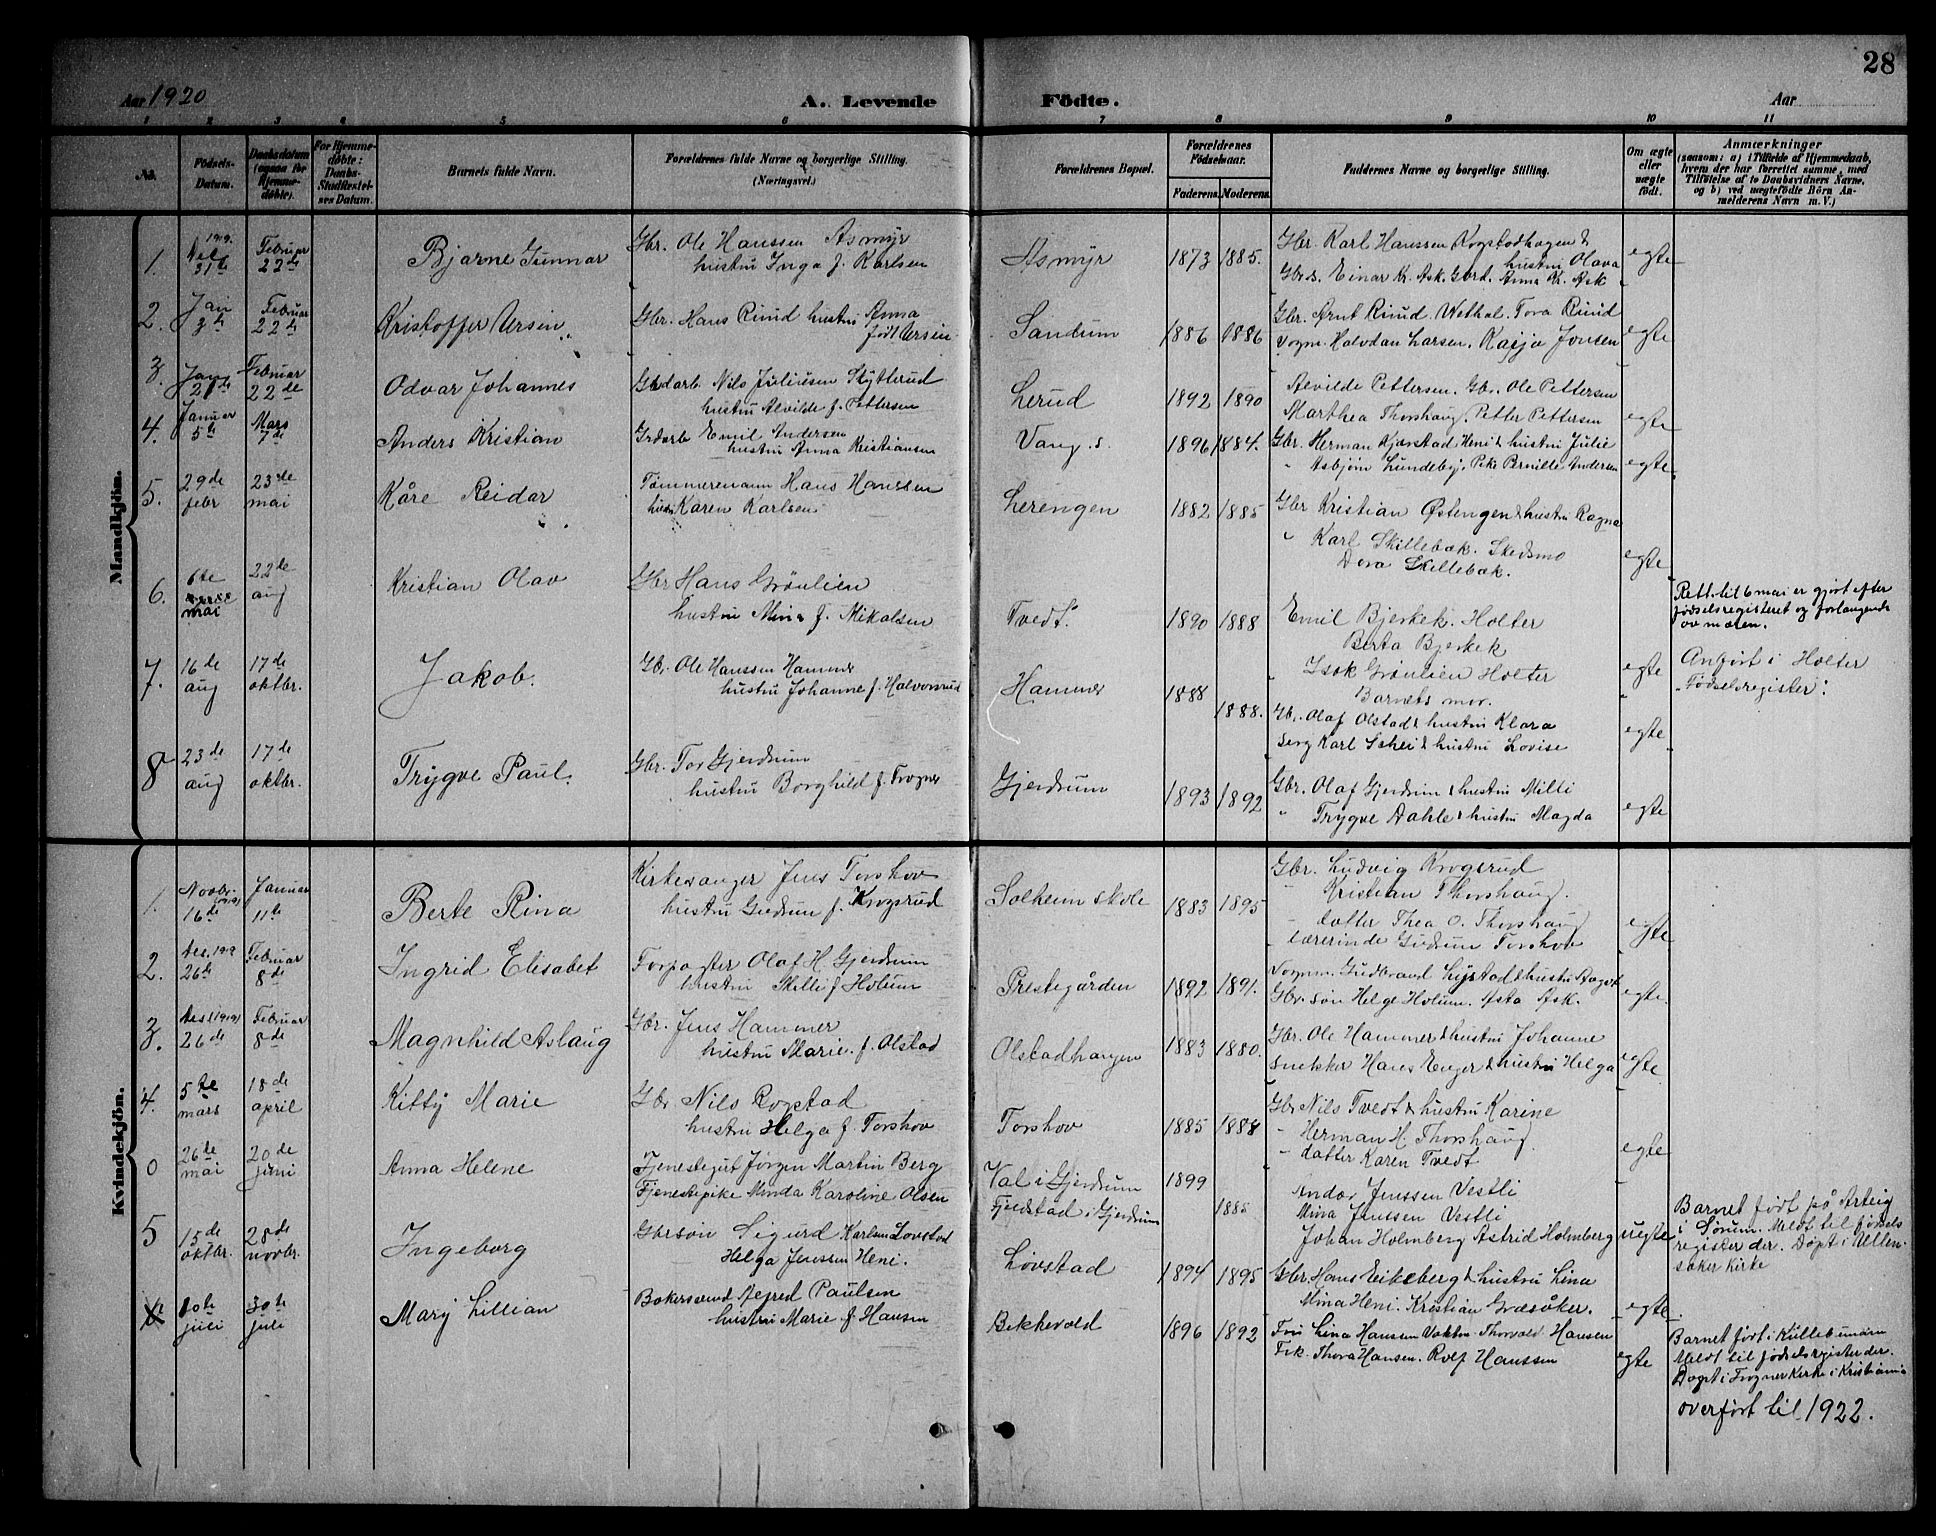 28
Aar 1920
A. Levende Födte.
Aar
1 2 3 4 5 6 7 8 9 10 11
No.
Födsels-Datum.
Daabsdatum (ogsaa for Hjemmedøbte).
For Hjemmedøbte: Daabs-Stadfæstelses Datum.
Barnets fulde Navn.
Forældrenes fulde Navne og borgerlige Stilling. (Næringsvei.)
Forældrenes Bopæl.
Forældrenes Fødselsaar.
Faderens. Moderens.
Faddernes Navne og borgerlige Stilling.
Om ægte eller uægte født.
Anmærkninger
(saasom: a) i Tilfælde af Hjemmedaab,
hvem der har forrettet samme, med
Tilføielse af to Daabsvidners Navne,
og b) ved uægtefødte Börn An-
melderens Navn m. V.)
Mandkjön.
1. 1919. 31te Februar 22de Bjarne Gunnar Gbr. Ole Hanssen Asmyr
hustru Inga f. Karlsen Asmyr 1873 1885. Gbr. Karl Hanssen Rogstadhagen & hustru Olava
Gbrd. Einar Kr. Ask. Gbrd. Anna Kr. Ask egte
2. Jan 3de Februar 22de Kristoffer Ursin Gbr. Hans Rind hustru Anna
født Ursin Sandum 1886 1886 Gbr. Arnt Rind. Wethal. Tora Rind
Vogm. Halvdan Larsen. Kasja Jonsen egte
3. Jan 21de Februar 22de Odvar Johannes Gbdarb Nils Juliussen Skytterud
hustru Alvilde f. Pettersen Lerud 1892 1890 Alvilde Pettersen. Gbr. Ole Pettersen
Marthea Thorshaug. Petter Pettersen egte
4. Januar 5te Mars 7de Anders Kristian Grdarb Emil Andersen
hustru Anna Kristiansen Vang. s. 1896 1884. Gbr. Herman Kjærstad Heni & hustru Julie
" Asbjørn Lundeby. Pike Pernille Andersen egte
5. 29de febr 23de mai Kåre Reidar Tømmermann Hans Hanssen
hustru Karen Karlsen Lerengen 1882 1885 Gbr Kristian Østengen & hustru Ragna
" Karl Skillebæk. Skedsmo
Dora Skillebæk. egte
6. 6te mai 22de aug Kristian Olav Gbr Hans Grönlien
hustru Mina f. Mikalsen Tvedt. 1890 1888 Emil Bjerkek. Holter
Berta Bjerkek
Isak Grönlien Holter
Barnets mor. egte Rett. til 6 mai er gjort efter
fødselsregisteret og forlangende
av moren.
Anført i Holter
"Fødselsregister".
7. 16de aug 17de oktbr. Jakob. Gbr. Ole Hanssen Hammer
hustru Johanne f. Halvorsrud Hammer 1888 1888. Gb. Olaf Olstad & hustru Klara
Serg Karl Schei & hustru Lovise egte
8 23de aug 17de oktbr. Trygve Paul. Gbr. Tor Gjerdrum
hustru Borghild f. Frogner Gjerdrum 1893 1892 Gbr. Olaf Gjerdrum & hustru Milli
" Trygve Dahle & hustru Magda egte
Kvindekjön.
1. Novbr. (1919) 16de Januar 11te Berte Rina Kirkesanger Jens Torshov
hustru Gudrun f. Krogsrud Solheim skole 1883 1895 Gbr. Ludvig Krogsrud
" Kristian Thorshaug.
" datter Thea O. Thorshaug
" Lærerinde Gudrun Torshov egte
2. Des. 1919 26te Februar 8de Ingrid Elisabet Forpagter Olaf H. Gjerdrum
hustru Milli f Holum Prestegården 1892 1891. Vogmm. Gudbrand Lystad & hustru Aagot
Gbr. søn Helge Holum. Asta Ask. egte
3. Des (1919) 26de Februar 8de Magnhild Aslaug Gbr. Jens Hammer
hustru Marie f. Olstad Olstadhangen 1883 1880. Gbr. Ole Hammer & hustru Johanne
Snekker Hans Enger & hustru Helga egte
4. 5te mars 18de april Kitty Marie Gbr Nils Rogstad
hustru Helga f. Torshov Torshov 1885 1888 Gbr Nils Tvedt & hustru Karine
" Herman H. Thorshaug
" datter Karen Tvedt egte
0 26de mai 20de juni Anna Helene Tjenestegut Jørgen Martin Berg
Tjenestepike Minda Karoline Olsen Val i Gjerdrum
Fjeldstad i Gjerdrum 1899 1885 Andor Jenssen Vestli
Mina Jenssen Vestli
Johan Holmberg Astrid Holmberg uegte Barnet født på Arteig
i Sørum. Meldt til fødsels
register der. Døpt i Ullen-
saker kirke
5 15de oktbr. 28de novbr. Ingeborg Gbrsøn Sigurd Karlsen Lovstad
Helga Jenssen Heni. Løvstad 1894 1895 Gbr Hans Eiksberg & hustru Lina
Mina Heni. Kristian Græsåker. egte
10de juli 30te juli Mary Lillian Bokersvend Alfred Paulsen
hustru Marie f Hansen Bekkevold 1896 1892 Fru Lina Hanssen Vaktm. Thorvald Hansen
Frk. Thora Hansen. Rolf Hanssen egte Barnet født i Kullebunden
Meldt til fødselsregister der.
Døpt i Frogner Kirke i Kristiania
overført til 1922.